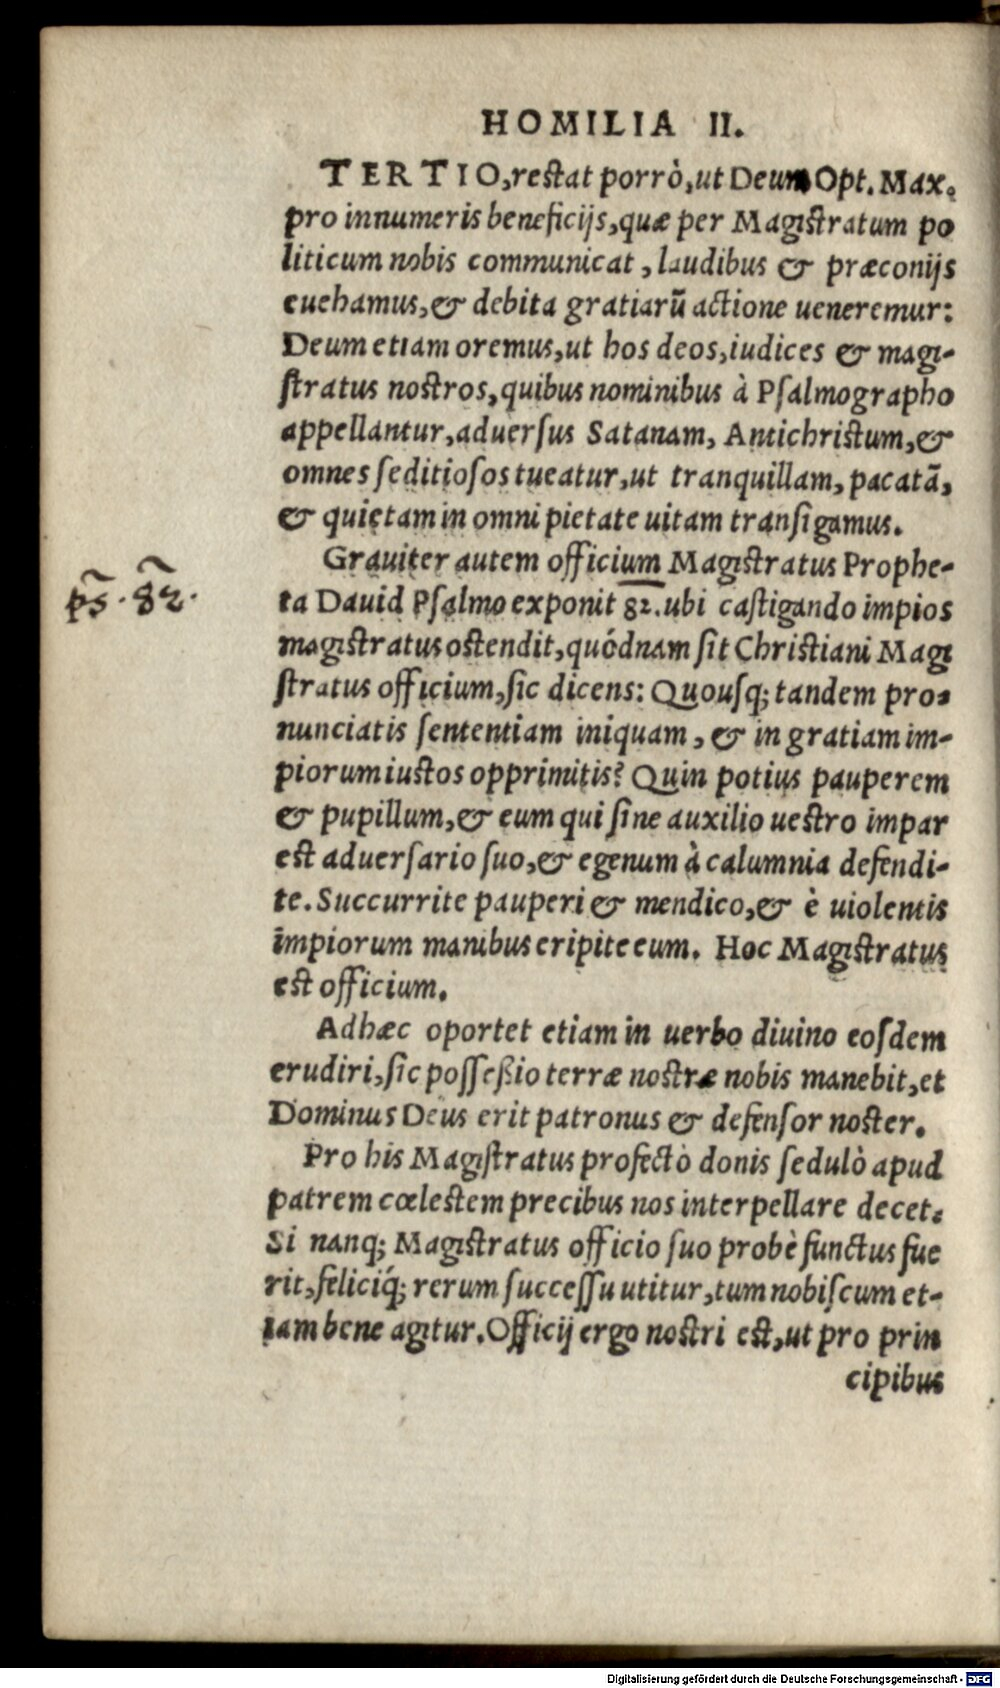 HOMILIA II.
TERTIO, restat porrò, ut Deum Opt. Max.
pro innumeris beneficijs, quæ per Magistratum po
liticum nobis communicat, laudibus & præconijs
euehamus, & debita gratiarũ actione ueneremur:
Deum etiam oremus, ut hos deos, iudices & magi-
ſtratus nostros, quibus nominibus à Pſalmographo
appellantur, aduerſus Satanam, Antichristum, &
omnes ſeditioſos tueatur, ut tranquillam, pacatã,
& quietam in omni pietate uitam tranſigamus.
Grauiter autem officium Magistratus Prophe-
ps. 82.
ta Dauid Pſalmo exponit 82. ubi caſtigando impios
magistratus ostendit, quódnam ſit Christiani Magi
ſtratus officium, ſic dicens: Quouſq; tandem pro-
nunciatis ſententiam iniquam, & in gratiam im-
piorum iustos opprimitis? Quin potius pauperem
& pupillum, & eum qui ſine auxilio uestro impar
est aduerſario ſuo, & egenum à calumnia defendi-
te. Succurrite pauperi & mendico, & è uiolentis
impiorum manibus eripite eum. Hoc Magistratus
est officium.
Adhæc oportet etiam in uerbo diuino eoſdem
erudiri, ſic poſſeßio terræ nostræ nobis manebit, et
Dominus Deus erit patronus & defenſor noster.
Pro his Magiſtratus profectò donis ſedulò apud
patrem cœlestem precibus nos interpellare decet.
Si nanq; Magistratus officio ſuo probè functus fue
rit, feliciq́; rerum ſucceſſu utitur, tum nobiſcum et-
iam bene agitur. Officij ergo nostri est, ut pro prin
cipibus
Digitalisierung gefördert durch die Deutsche Forschungsgemeinschaft - DFG